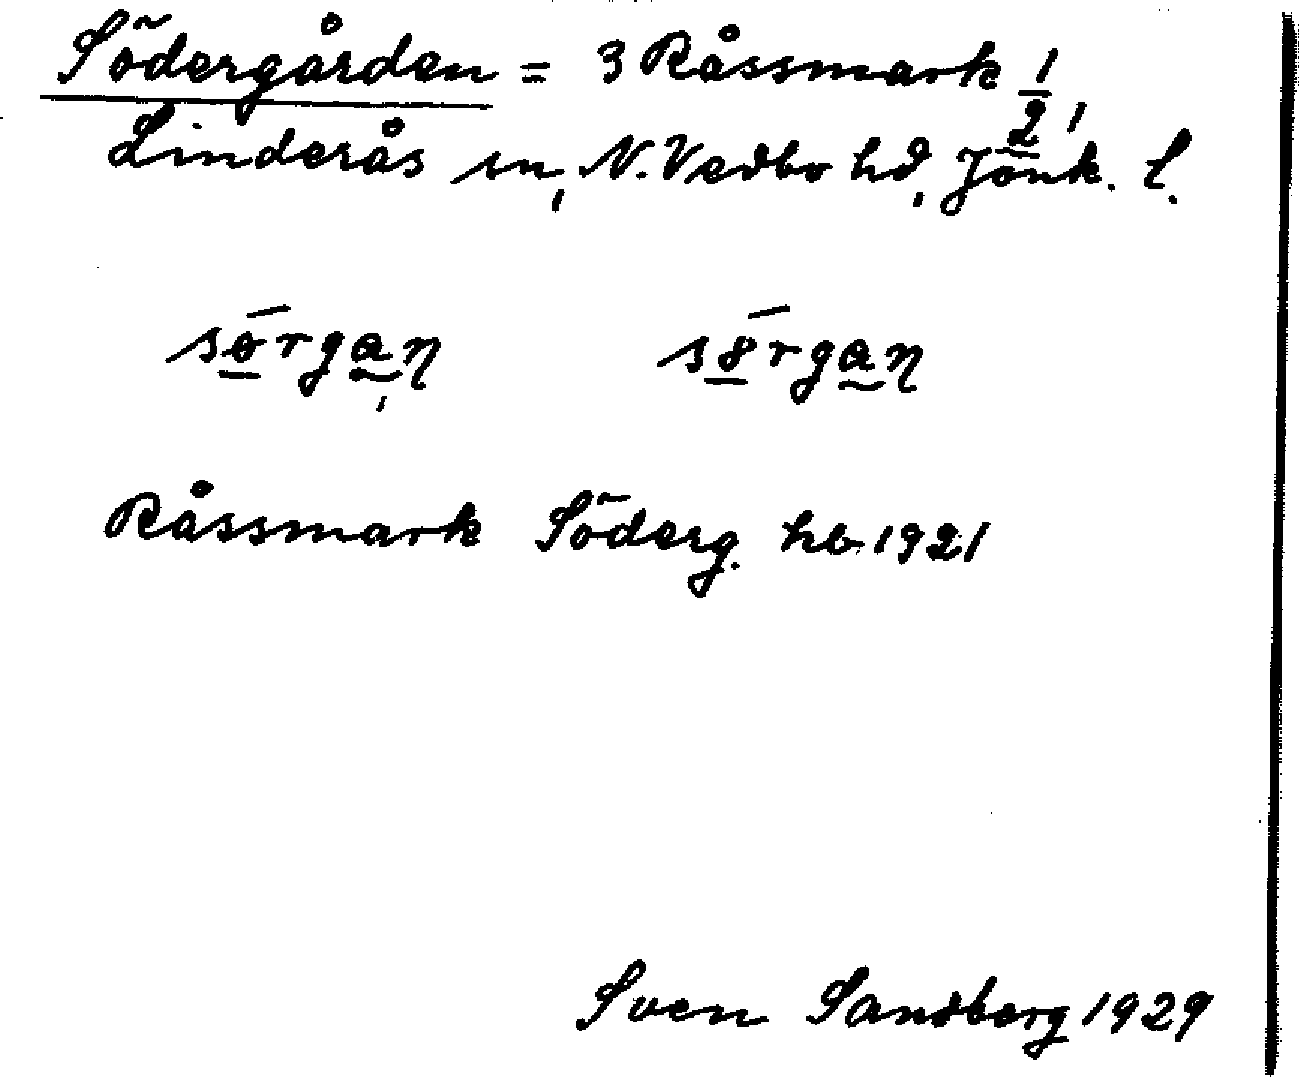 Södergården = 3 Råssmark 1/2,
Linderås sn, N. Vedbo hd, Jönk. l.
Råssmark Söderg. hb 1921
Sven Sandberg 1929